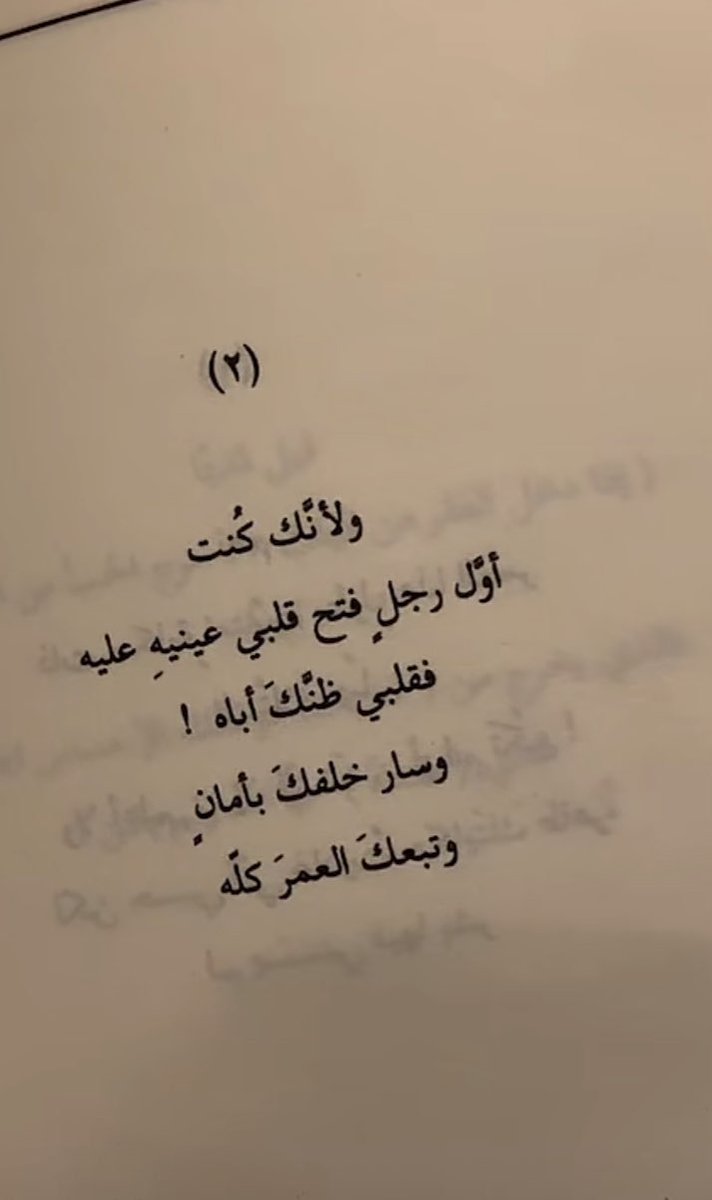 (٢)
ولأنَّك كُنت
أوَّل رجلٍ فتح قلبي عينيهِ عليه
فقلبي ظنَّكَ أباه !
وسار خلفكَ بأمانٍ
وتبعكَ العمرَ كلّه